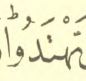 تَهْتَدُوا